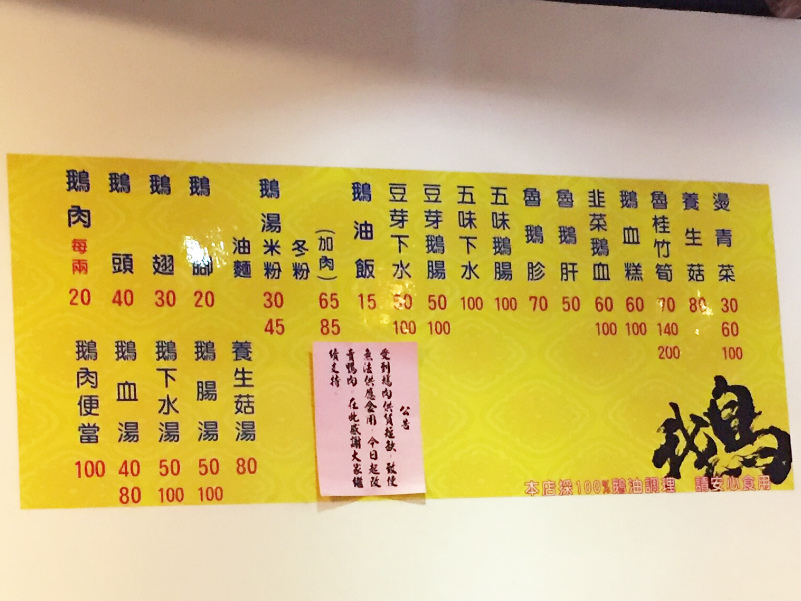 鵝肉 每兩 20
鵝頭 40
鵝翅 30
鵝腳 20
鵝湯 油麵 米粉 冬粉 30 45
(加肉) 65 85
鵝油飯 15
豆芽下水 50 100
豆芽鵝腸 50 100
五味下水 100
五味鵝腸 100
魯鵝胗 70
魯鵝肝 50
韭菜鵝血 60 100
鵝血糕 60 100
魯桂竹筍 70 140 200
養生菇 80
燙青菜 30 60 100
鵝肉便當 100
鵝血湯 40 80
鵝下水湯 50 100
鵝腸湯 50 100
養生菇湯 80
公告
受到鵝肉供貨短缺 致使
無法供應食用 今日起改
賣鴨肉 在此感謝大家繼
續支持
鵝
本店採100%鵝油調理 請安心食用